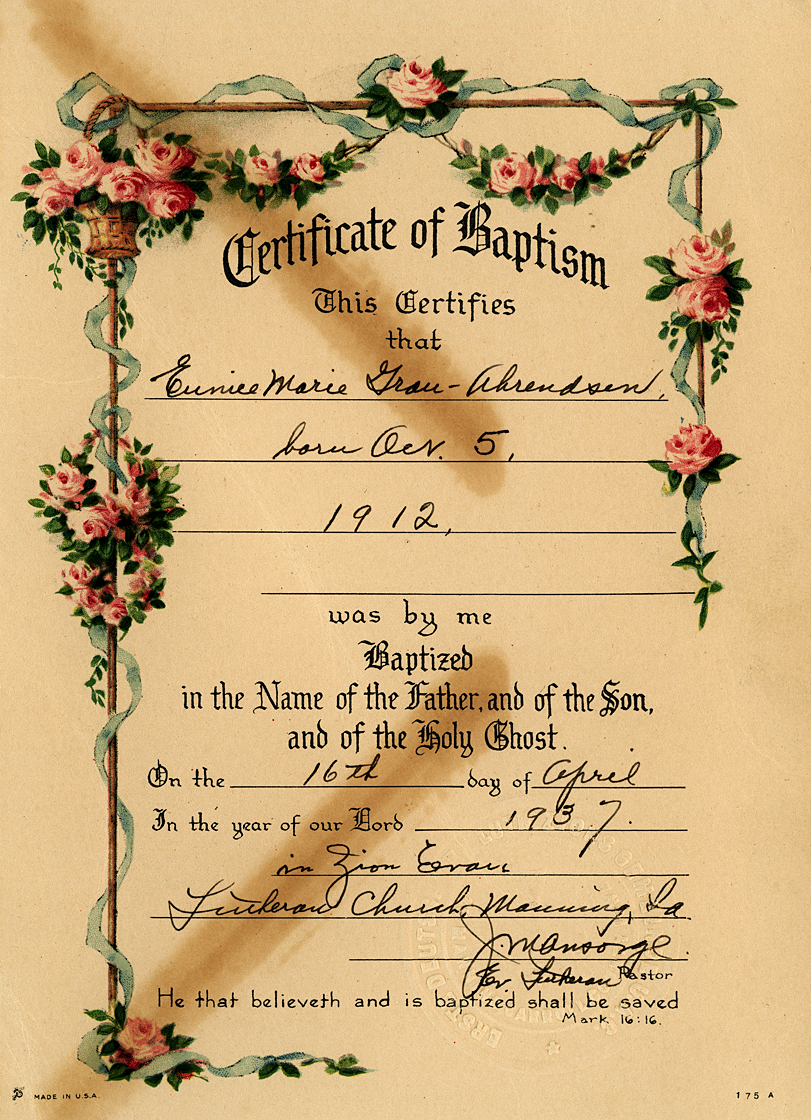 Certificate of Baptism
This Certifies
that
Eunice Marie Grau-Ahrendsen,
born Oct. 5,
1912,
was by me
Baptized
in the Name of the Father, and of the Son,
and of the Holy Ghost.
On the 16th day of April
In the year of our Lord 1937.
in Zion Evan
Lutheran Church, Manning, Ia.
J. Mansorge.
Ev. Lutheran Pastor
He that believeth and is baptized shall be saved
Mark 16:16.
MADE IN U.S.A.
175 A